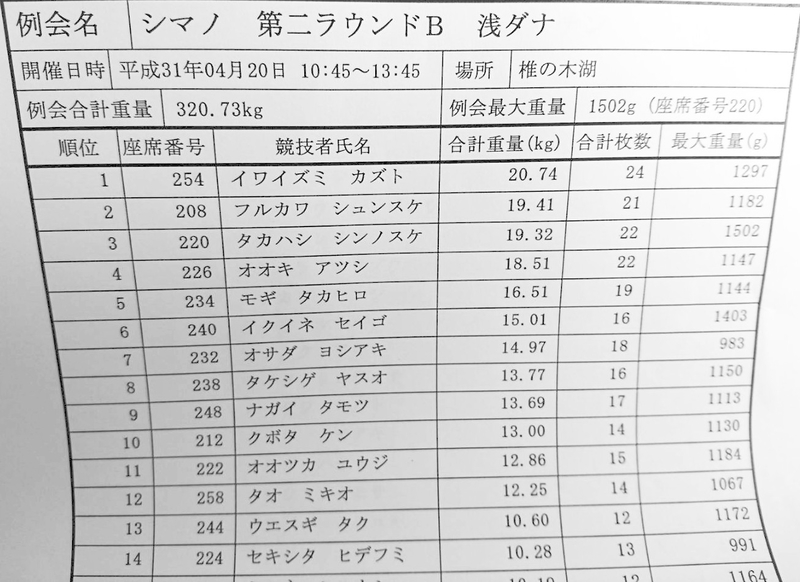 例会名 シマノ 第二ラウンドB 浅ダナ
開催日時 平成31年04月20日 10:45～13:45 場所 椎の木湖
例会合計重量 320.73kg 例会最大重量 1502g (座席番号220)
順位 座席番号 競技者氏名 合計重量(kg) 合計枚数 最大重量(g)
1 254 イワイズミ カズト 20.74 24 1297
2 208 フルカワ シュンスケ 19.41 21 1182
3 220 タカハシ シンノスケ 19.32 22 1502
4 226 オオキ アツシ 18.51 22 1147
5 234 モギ タカヒロ 16.51 19 1144
6 240 イクイネ セイゴ 15.01 16 1403
7 232 オサダ ヨシアキ 14.97 18 983
8 238 タケシゲ ヤスオ 13.77 16 1150
9 248 ナガイ タモツ 13.69 17 1113
10 212 クボタ ケン 13.00 14 1130
11 222 オオツカ ユウジ 12.86 15 1184
12 258 タオ ミキオ 12.25 14 1067
13 244 ウエスギ タク 10.60 12 1172
14 224 セキシタ ヒデフミ 10.28 13 991
12 1164